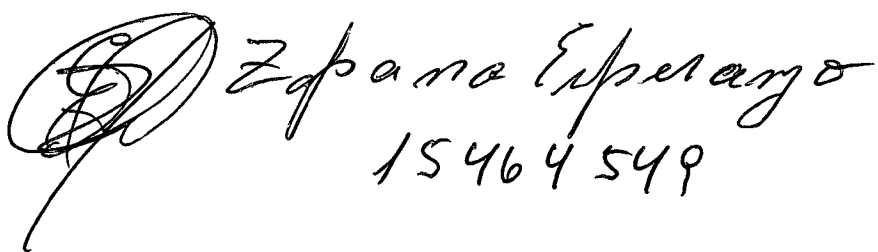 Zapana Esperanza
15464549